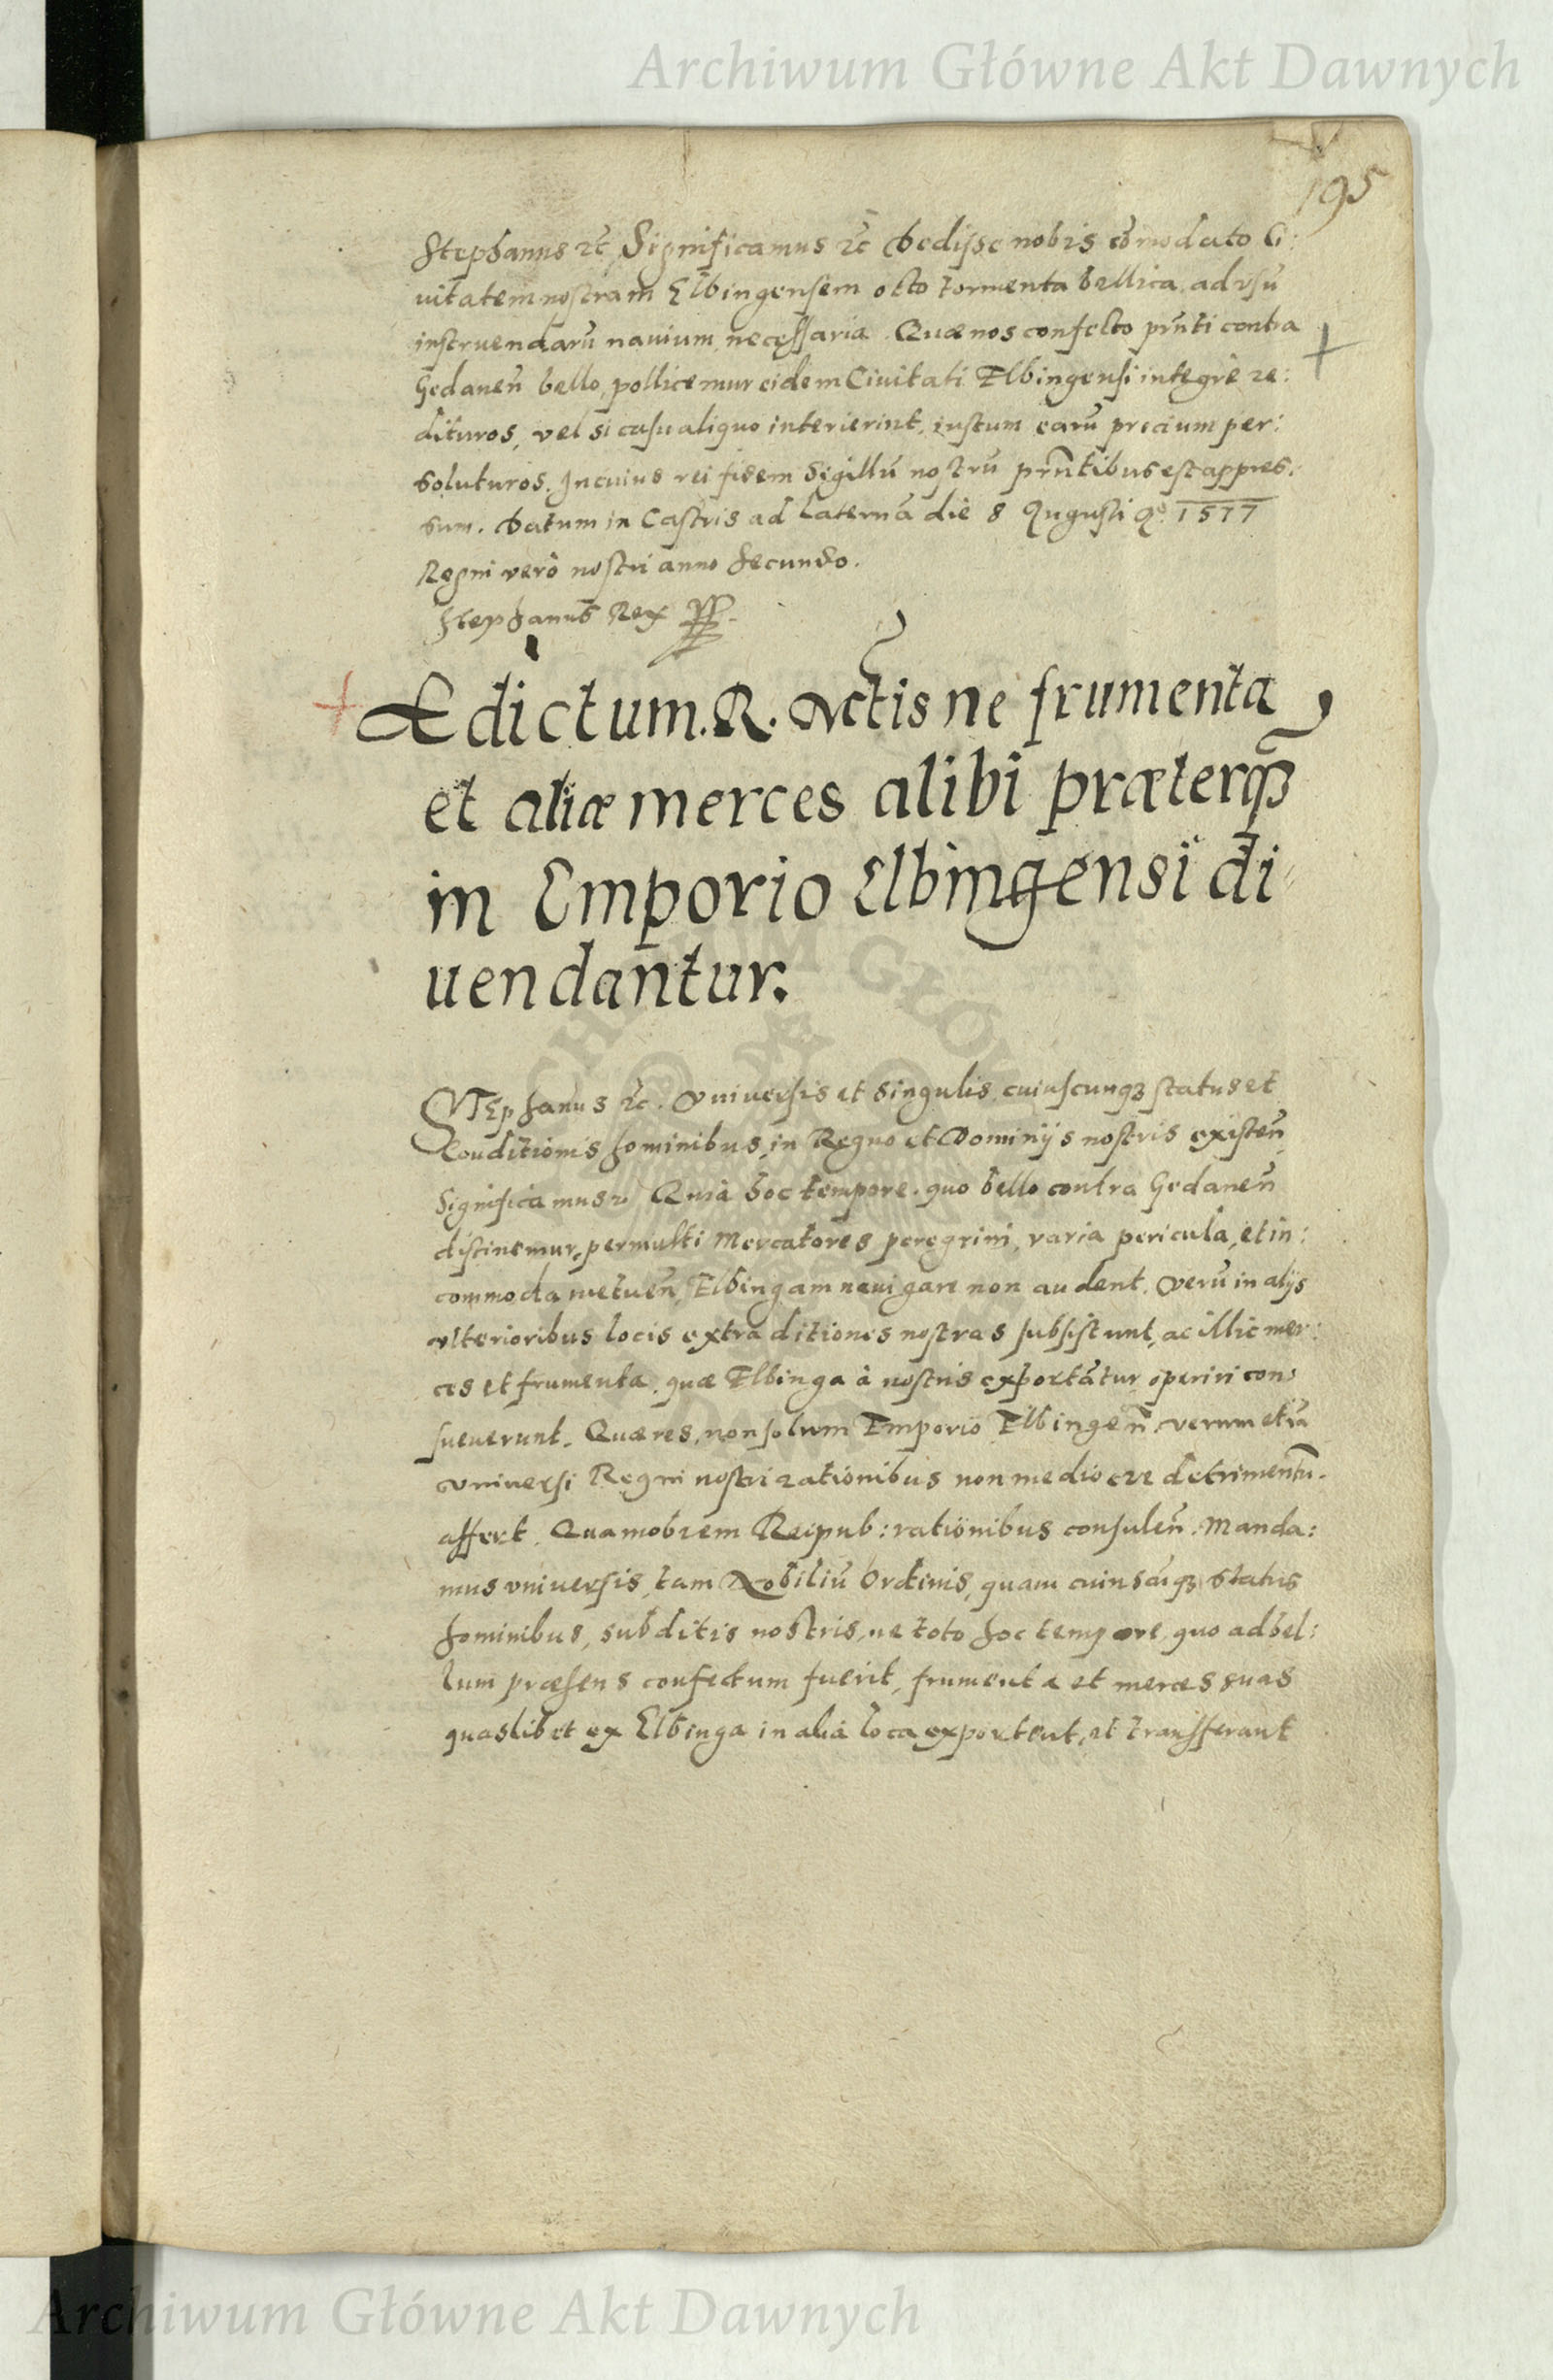 Archiwum Główne Akt Dawnych
195
Stephanus etc Significamus etc Dedisse nobis cõmodato Ci:
uitatem nostram Elbingensem octo tormenta bellica, ad vsũ
instruendarũ nauium necessaria. Quæ nos confecto pñti contra
Gedaneñ bello, pollicemur eidem Ciuitati Elbingensi integrè re:
dituros, vel si casu aliquo interierint, iustum earũ precium per:
soluturos. In cuius rei fidem Sigillũ nostrũ pñtibus est appres:
sum. Datum in Castris ad Laternã die 8 Augusti Aº 1577
Regni verò nostri anno secundo.
Stephanus Rex
Edictum. R. Mctis ne frumenta
et aliæ merces alibi præterq̃
in Emporio Elbingensi di
uendantur.
STEphanus etc. Vniuersis et singulis cuiuscunqꝫ status et
Conditionis hominibus, in Regno et Dominijs nostris existeñ
Significamus Quia hoc tempore quo bello contra Gedaneñ
distinemur, permulti Mercatores peregrini, varia pericula, et in:
commoda metueñ, Elbingam nauigare non audent. Verũ in alijs
vlterioribus locis extra ditiones nostras subsistunt, ac illic mer:
ces et frumenta, quæ Elbinga à nostris exportãtur operiri con:
sueuerunt. Quæ res, non solum Emporio Elbingeñ verum etiã
vniuersi Regni nostri rationibus non mediocre detrimentũ.
affert. Quamobrem Reipub: rationibus consuleñ. Manda:
mus vniuersis, tam Nobiliũ Ordinis, quam cuiuscũqꝫ status
hominibus, subditis nostris, ne toto hoc tempore, quo ad bel:
lum præsens confectum fuerit, frumenta et merces suas
quaslibet ex Elbinga in alia loca exportent, et transferant
Archiwum Główne Akt Dawnych